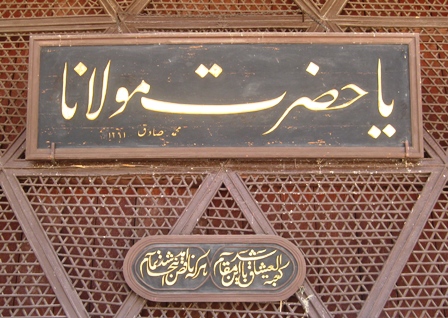 يا حضرت مولانا
محمد صادق ١٢٦١
كعبة العشاق باشد اين مقام
هر كه ناقص آمد اينجا شد تمام